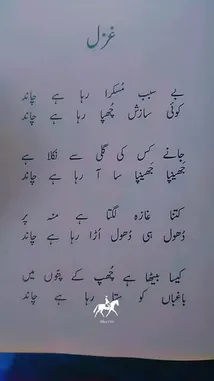 غزل
بے سبب مُسکرا رہا ہے چاند
کوئی سازش چُھپا رہا ہے چاند
جانے کس کی گلی سے نکلا ہے
جھینپا جھینپا سا آ رہا ہے چاند
کتنا غازہ لگتا ہے منہ پر
دُھول ہی دُھول اُڑا رہا ہے چاند
کیسا بیٹھا ہے چُھپ کے پتوں میں
باغباں کو ستا رہا ہے چاند